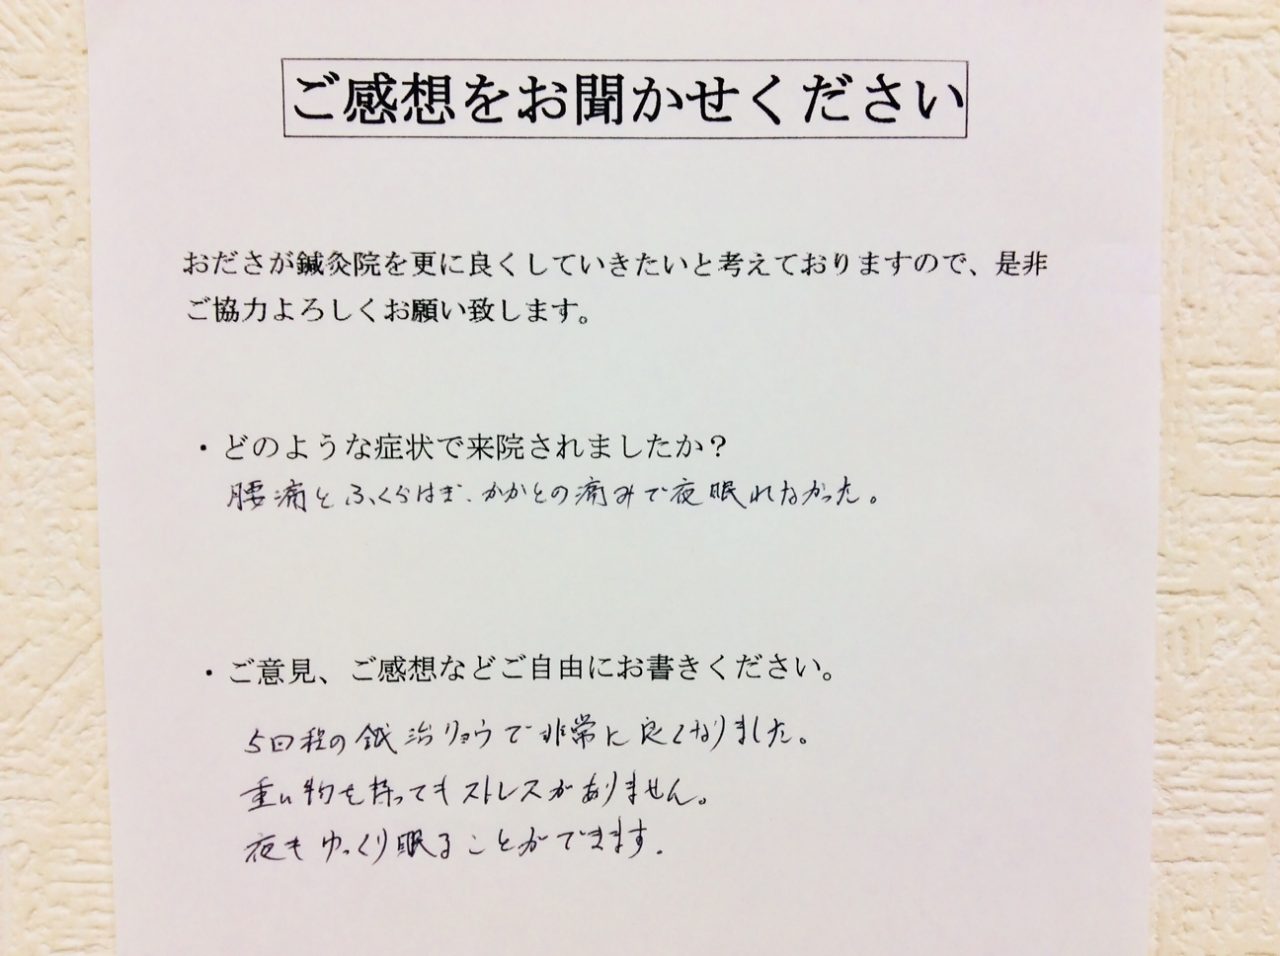 ご感想をお聞かせください
おださが鍼灸院を更に良くしていきたいと考えておりますので、是非
ご協力よろしくお願い致します。
・どのような症状で来院されましたか？
腰痛とふくらはぎ、かかとの痛みで夜眠れなかった。
・ご意見、ご感想などご自由にお書きください。
5回程の鍼治リョウで非常に良くなりました。
重い物を持ってもストレスがありません。
夜もゆっくり眠ることができます.